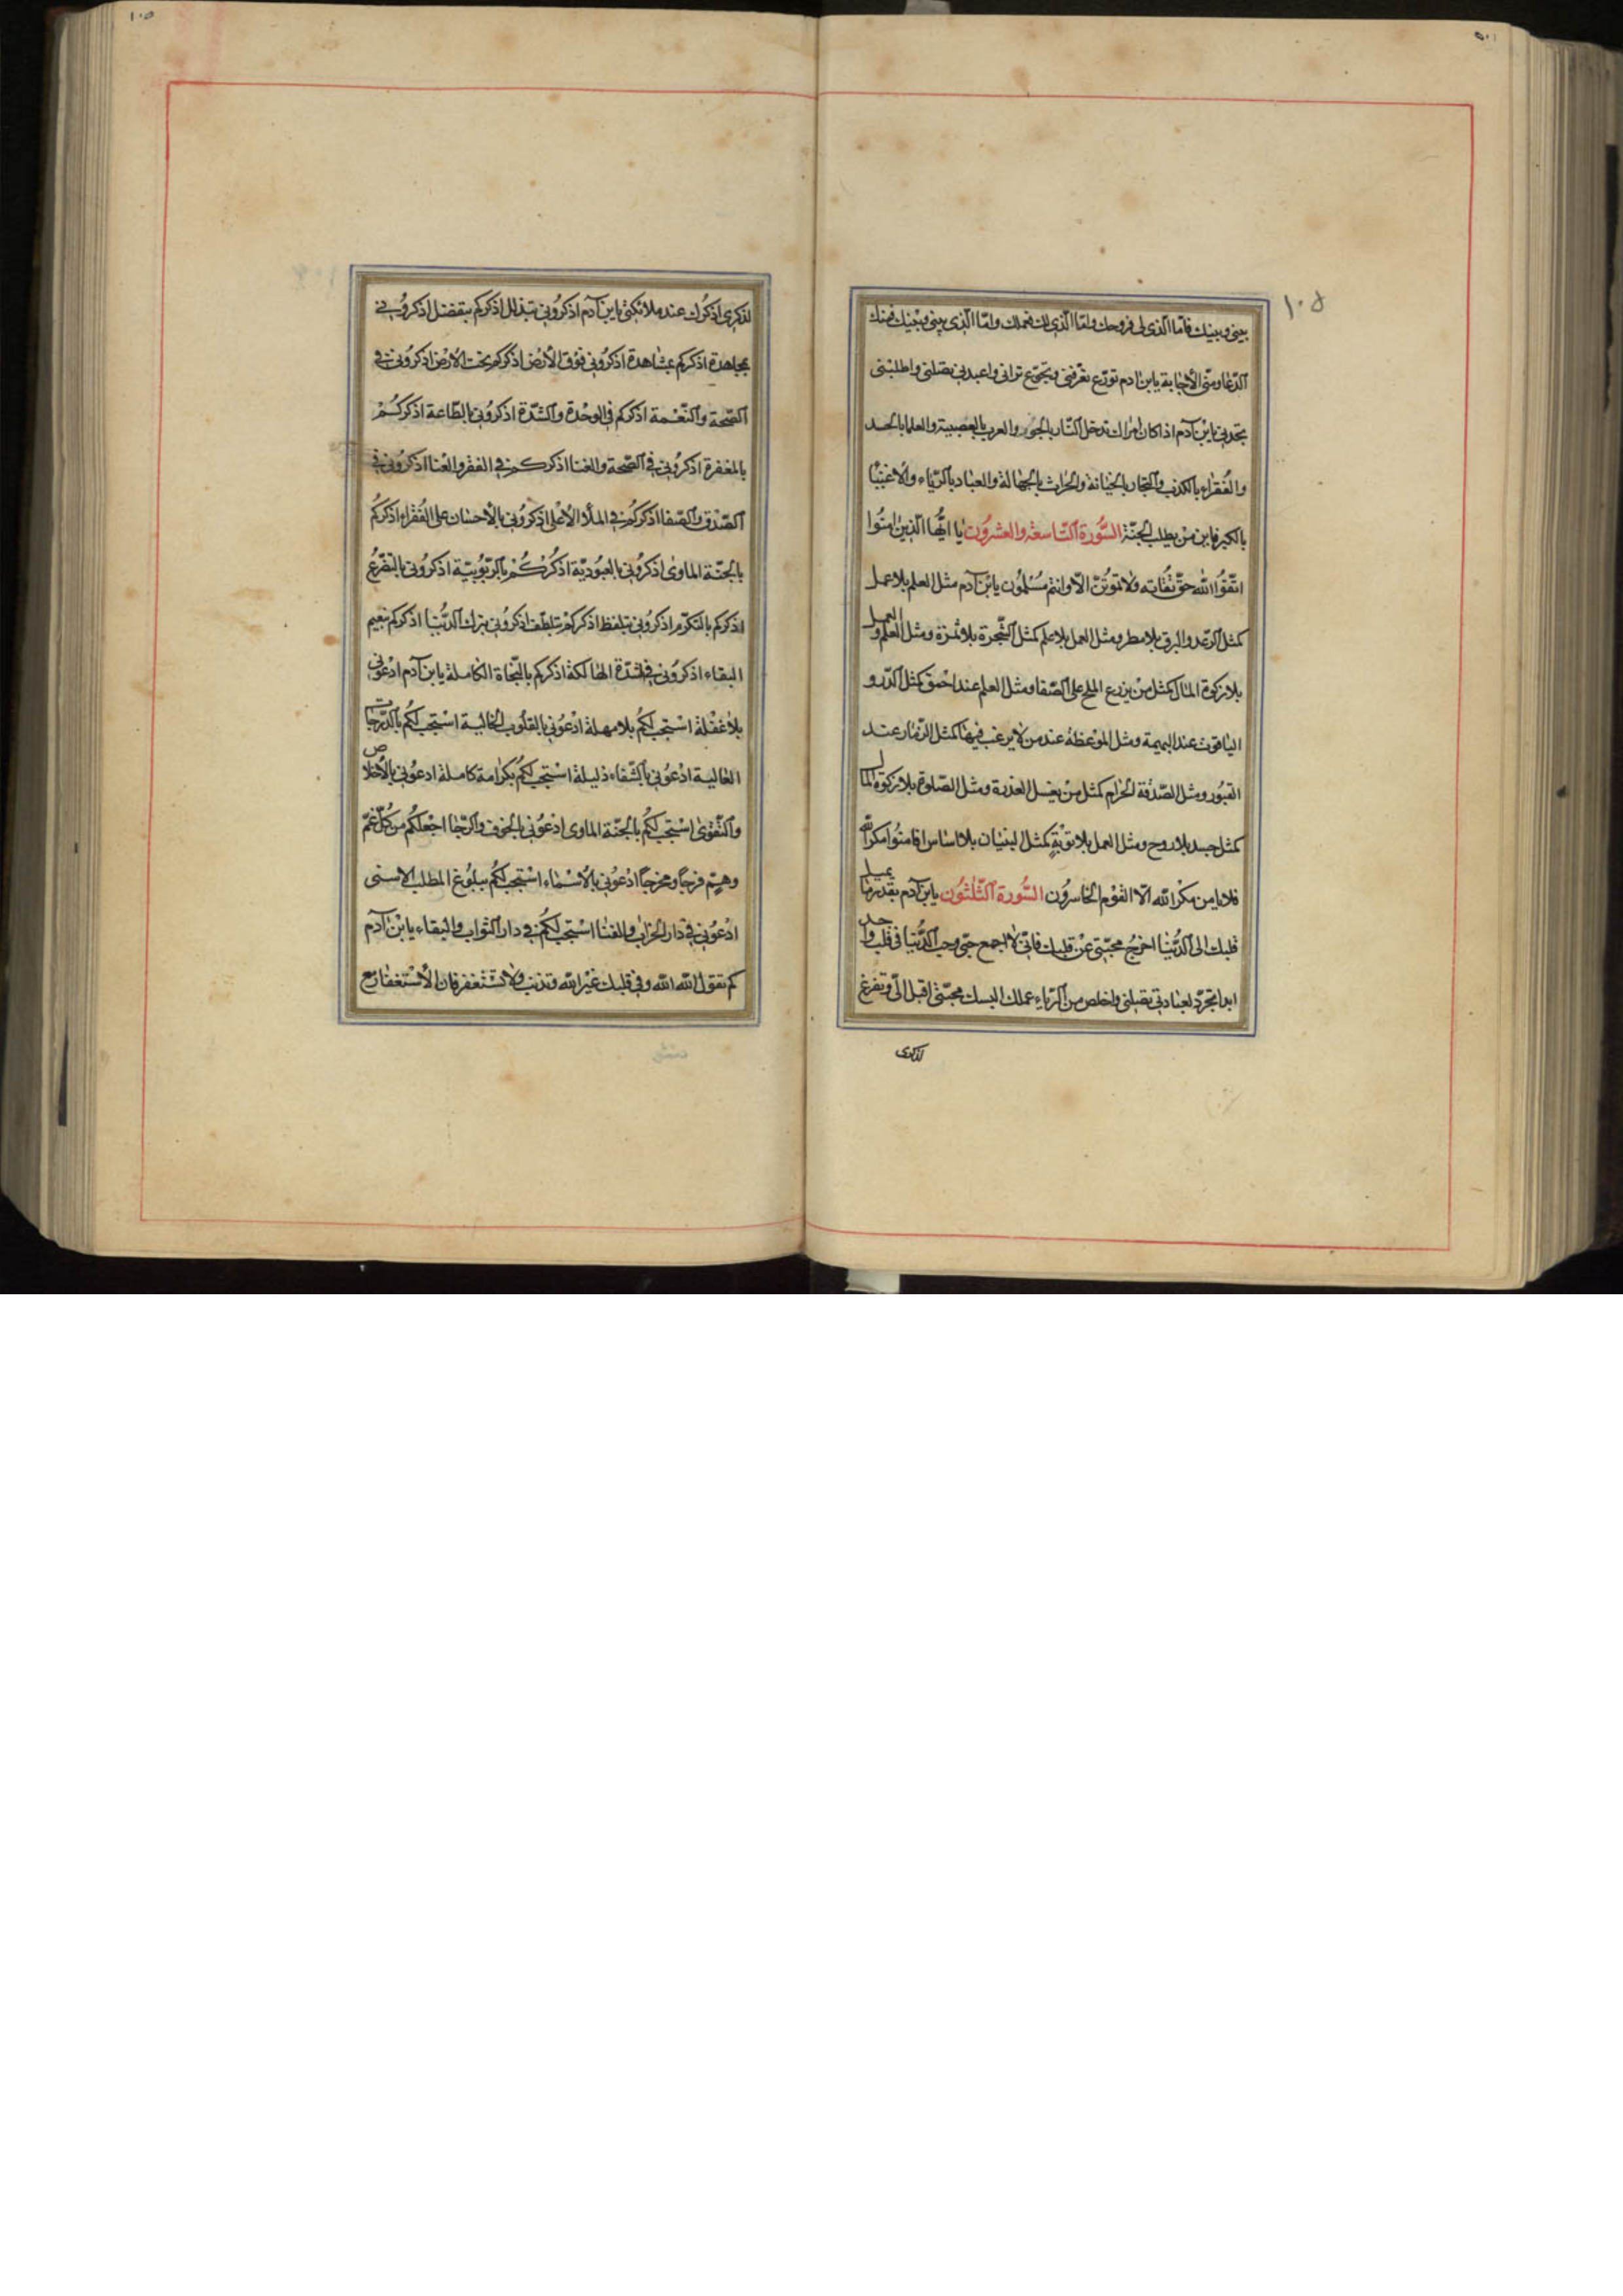 ١٠٥
بينى وبينك فامّا الّذى لى فروحك وامّا الّذى لك فعملك وامّا الّذى بينى وبينك فمنك
الدّعا ومنّى الأجابة يابن ادم تورّع تعرفنى وتجوّع ترانى واعبدنى تصلنى واطلبنى
تجدنى يابن آدم اذا كان امراك تدخل النّار بالجور والعرب بالعصبية والعلما بالحسد
والفقراء بالكذب والتجار بالخيانة والحراث بالجهالة والعباد بالرّياء والأغنيا
بالكبر فاين من يطلب الجنّة السّورة التّاسعة والعشرون يا ايّها الّذين امنوا
اتّقوا اللّه حقّ تقاته ولا تموتنّ الّا وانتم مسلمون يابن آدم مثل العلم بلا عمل
كمثل الرّعد والبرق بلا مطر ومثل العمل بلا علم كمثل الشّجرة بلا ثمرة ومثل العلم والعمل
بلا زكوة المال كمثل من يزرع الملح على الصّفا ومثل العلم عند احمق كمثل الدّر و
الياقوت عند البهيمة ومثل الموعظة عند من لا يرغب فيها كمثل الزمار عند
القبور ومثل الصّدقة الحرام كمثل من يغسل العذرة ومثل الصّلوة بلا زكوة المال
كمثل جسد بلا روح ومثل العمل بلا توبة كمثل البنيان بلا اساس افامنوا مكر اللّه
فلا يامن مكر اللّه الّا القوم الخاسرون السّورة الثّلثون يابن آدم بقدر ما يميل
قلبك الى الدّنيا اخرج محبّتى عن قلبك فانّى لا اجمع حبّى وحب الدّنيا فى قلب واحد
ابدا تجرّد لعبادتى تقبلنى واخلص من الرّياء عملك البسك محبّتى اقبل الىّ وتفرغ
لذكرى
١٠٥
لذكرى اذكرك عند ملائكتى يابن آدم اذكرونى بتذلل اذكركم بتفضل اذكرونى
بمجاهدة اذكركم بمشاهدة اذكرونى فوق الأرض اذكركم تحت الأرض اذكرونى فى
الصّحة والنّعمة اذكركم فى الوحدة والشّدّة اذكرونى بالطّاعة اذكركم
بالمغفرة اذكرونى فى الصّحة والغنا اذكركم فى الفقر والعنا اذكرونى فى
الصّدق والصّفا اذكركم فى الملأ الأعلى اذكرونى بالأحسان على الفقراء اذكركم
بالجنّة الماوى اذكرونى بالعبوديّة اذكركم بالرّبوبيّة اذكرونى بالتضرّع
اذكركم بالتكرّم اذكرونى بتلفظ اذكركم بتلطّف اذكرونى بترك الدّنيا اذكركم بنعيم
البقاء اذكرونى فى الشدّة الهالكة اذكركم بالنّجاة الكاملة يابن آدم ادعونى
بلا غفلة استجب لكم بلا مهلة ادعونى بالقلوب الخالية استجب لكم بالدّرجات
العالية ادعونى استجب لكم بكرامة كاملة ادعونى بالأخلاص
والتّقوى استجب لكم بالجنّة الماوى ادعونى بالخوف والرّجا اجعلكم من كلّ غمّ
وهمّ فرجا ومخرجا ادعونى بالأسماء استجب لكم ببلوغ المطلب الاسنى
ادعونى فى دار الخراب والفنا استجب لكم فى دار الثواب والبقاء يابن آدم
كم تقول اللّه اللّه وفى قلبك غير اللّه وتذنب ولا تستغفر فان الأستغفار مع